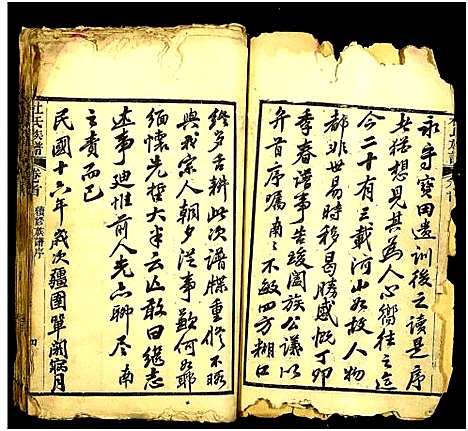 永守寶田遺訓後之讀是序
者猶想見其為人心嚮往之迄
今二十有三載河山如故人物
都非世易時移曷勝感慨丁卯
季春譜事告竣闔族公議以
弁首序囑南南不敏四方糊口
終歲舌耕此次譜牒重修不暇
與我宗人朝夕從事歉何如耶
緬懷先哲大半云亡敢曰繼志
述事廸惟前人光亦聊尽南
之責而已
民國十六年歲次彊圉單閼病月
杜氏族譜
卷首
續修族譜序
四